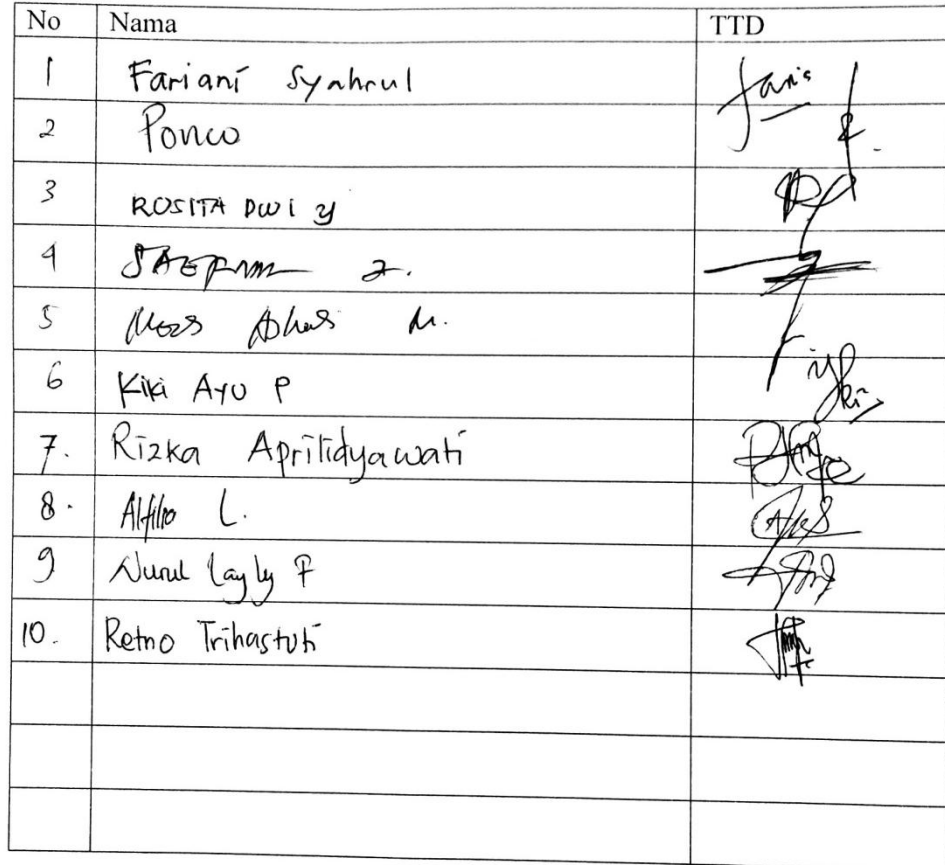 No Nama TTD
1 Fariani Syahrul faris
2 Ponco
3 ROSITA DWI Y
4
5 M.
6 Kiki Ayu P
7. Rizka Aprilidyawati
8. L.
9 Nurul Layly F
10. Retno Trihastuti